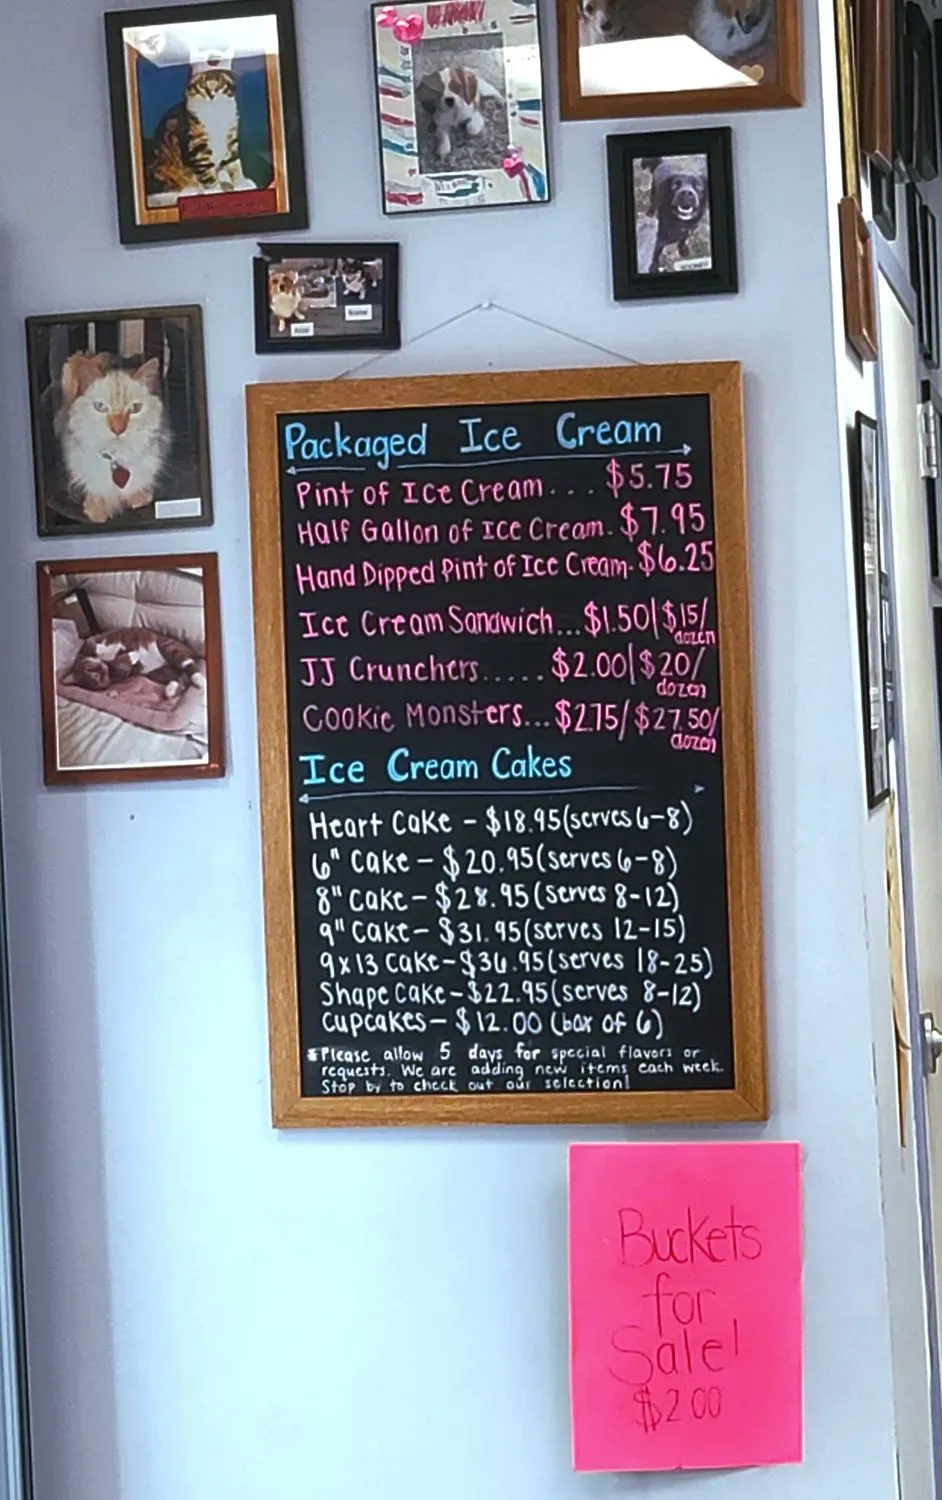 Packaged Ice Cream
Pint of Ice Cream... $5.75
Half Gallon of Ice Cream. $7.95
Hand Dipped Pint of Ice Cream. $6.25
Ice Cream Sandwich...$1.50|$15/
dozen
JJ Crunchers.....$2.00|$20/
dozen
Cookie Monsters...$2.75/$27.50/
dozen
Ice Cream Cakes
Heart Cake - $18.95(serves 6-8)
6" Cake - $20.95(serves 6-8)
8" Cake - $28.95(serves 8-12)
9" Cake - $31.95(serves 12-15)
9x13 Cake-$36.95(serves 18-25)
Shape Cake-$22.95(serves 8-12)
Cupcakes - $12.00 (box of 6)
*Please allow 5 days for special flavors or
requests. We are adding new items each week.
Stop by to check out our selection!
Buckets
for
Sale!
$2.00